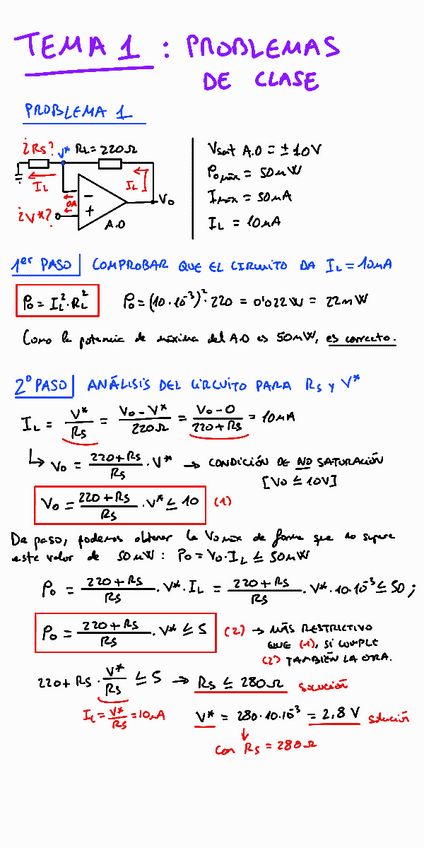 TEMA 1 : PROBLEMAS
DE CLASE
PROBLEMA 1
¿Rs? V* RL = 220Ω
IL
IL
0A
¿V*?
Vo
A.O
Vsat A.O = ± 10V
Pomáx = 50mW
Imáx = 50mA
IL = 10mA
1er PASO | COMPROBAR QUE EL CIRCUITO DA IL = 10mA
Po = IL² · RL² Po = (10·10⁻³)² · 220 = 0'022W = 22mW
Como la potencia de máxima del A.O es 50mW, es correcto.
2º PASO | ANÁLISIS DEL CIRCUITO PARA Rs y V*
IL = V*/Rs = Vo - V*/220Ω = Vo - 0/220 + Rs = 10mA
↳ Vo = 220 + Rs/Rs · V* → CONDICIÓN DE NO SATURACIÓN
[Vo ≤ 10V]
Vo = 220 + Rs/Rs · V* ≤ 10 (1)
De paso, podemos obtener la Vomáx de forma que no supere
este valor de 50mW : Po = Vo · IL ≤ 50mW
Po = 220 + Rs/Rs · V* · IL = 220 + Rs/Rs · V* · 10·10⁻³ ≤ 50 ;
Po = 220 + Rs/Rs · V* ≤ 5 (2) → MÁS RESTRICTIVO
QUE (1), SI CUMPLE
(2) TAMBIÉN LA OTRA.
220 + Rs · V*/Rs ≤ 5 → Rs ≤ 280Ω solución
IL = V*/Rs = 10mA
V* = 280 · 10·10⁻³ = 2,8 V solución
con Rs = 280Ω